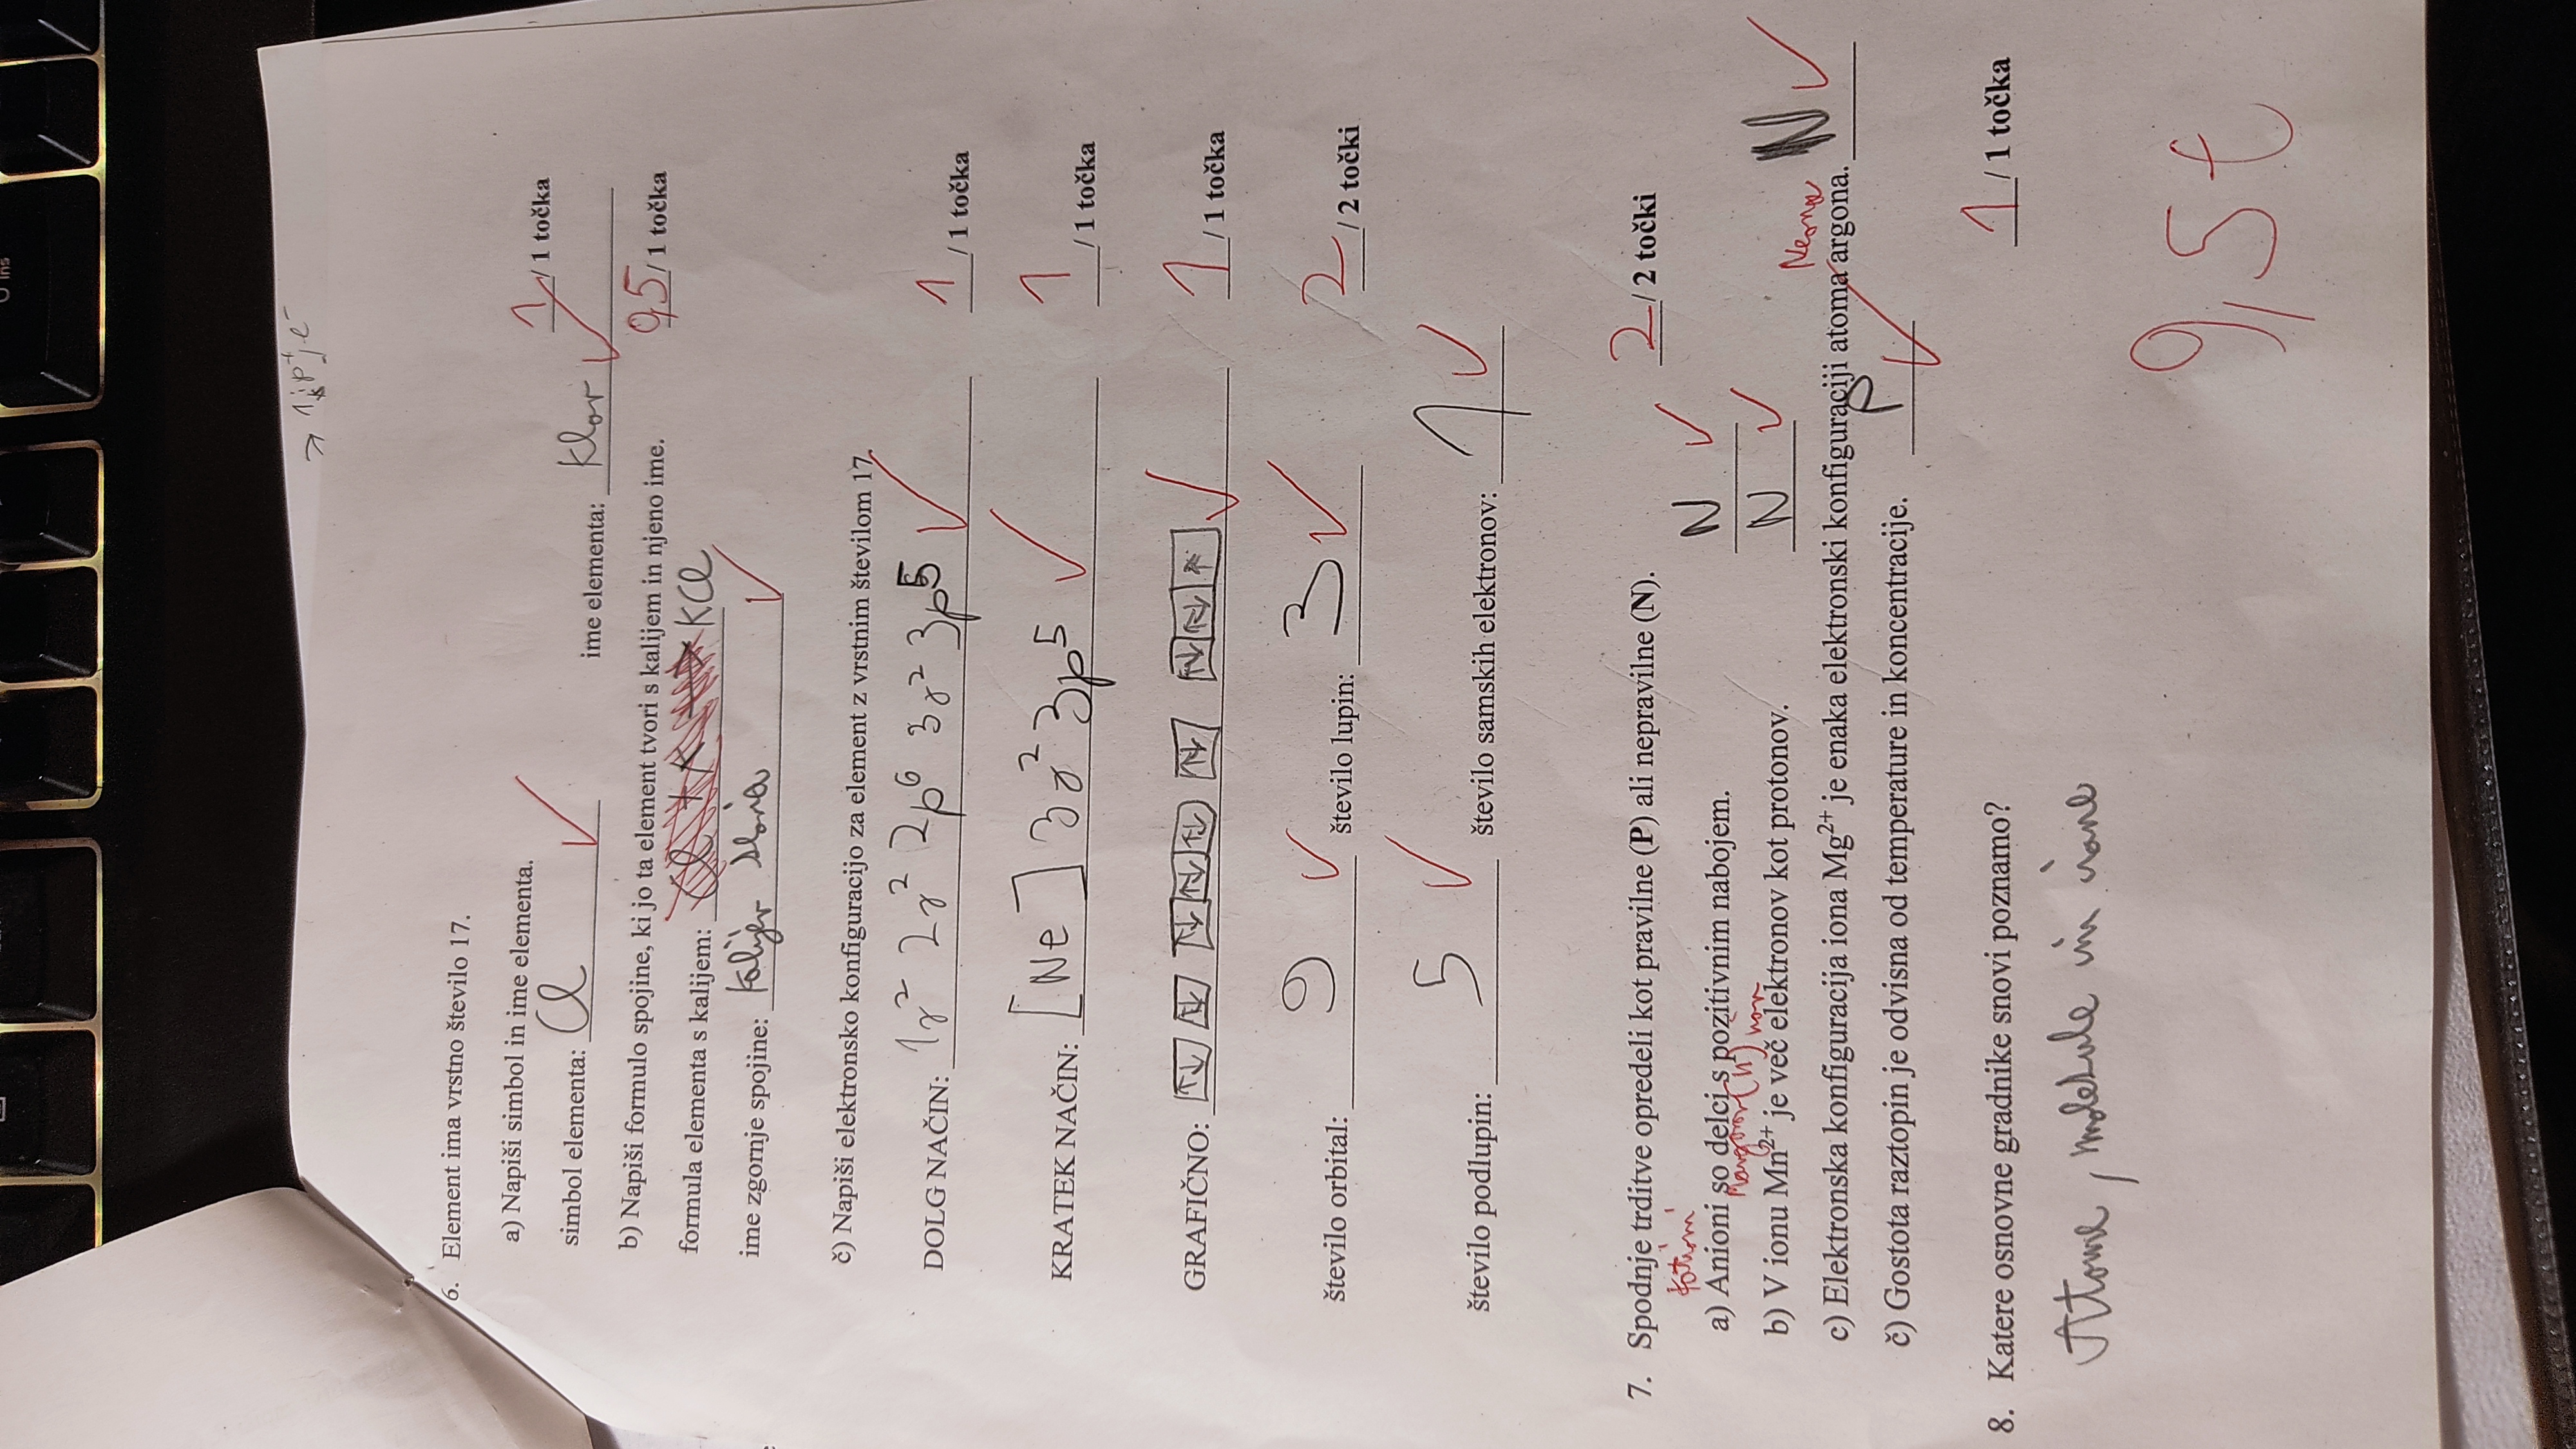 Ins
→ 1; p⁺, e⁻
6. Element ima vrstno število 17.
a) Napiši simbol in ime elementa.
1 / 1 točka
simbol elementa: Cl ✓ ime elementa: Klor ✓
b) Napiši formulo spojine, ki jo ta element tvori s kalijem in njeno ime. 0,5 / 1 točka
formula elementa s kalijem: KCl
ime zgornje spojine: Kalijev ✓
č) Napiši elektronsko konfiguracijo za element z vrstnim številom 17.
DOLG NAČIN: 1s² 2s² 2p⁶ 3s² 3p⁵ ✓ 1 / 1 točka
KRATEK NAČIN: [Ne] 3s² 3p⁵ ✓ 1 / 1 točka
GRAFIČNO: ↑↓ ↑↓ ↑↓ ↑↓ ↑↓ ↑↓ ↑↓ ↑↓ ↑ ✓ 1 / 1 točka
število orbital: 9 ✓ število lupin: 3 ✓ 2 / 2 točki
število podlupin: 5 ✓ število samskih elektronov: 1 ✓
7. Spodnje trditve opredeli kot pravilne (P) ali nepravilne (N). 2 / 2 točki
Kationi
a) Anioni so delci s pozitivnim nabojem. N ✓
(II) ion
b) V ionu Mn²⁺ je več elektronov kot protonov. N ✓
Neona
c) Elektronska konfiguracija iona Mg²⁺ je enaka elektronski konfiguraciji atoma argona. N ✓
č) Gostota raztopin je odvisna od temperature in koncentracije. P ✓
8. Katere osnovne gradnike snovi poznamo? 1 / 1 točka
Atome, molekule in ione
9,5 t